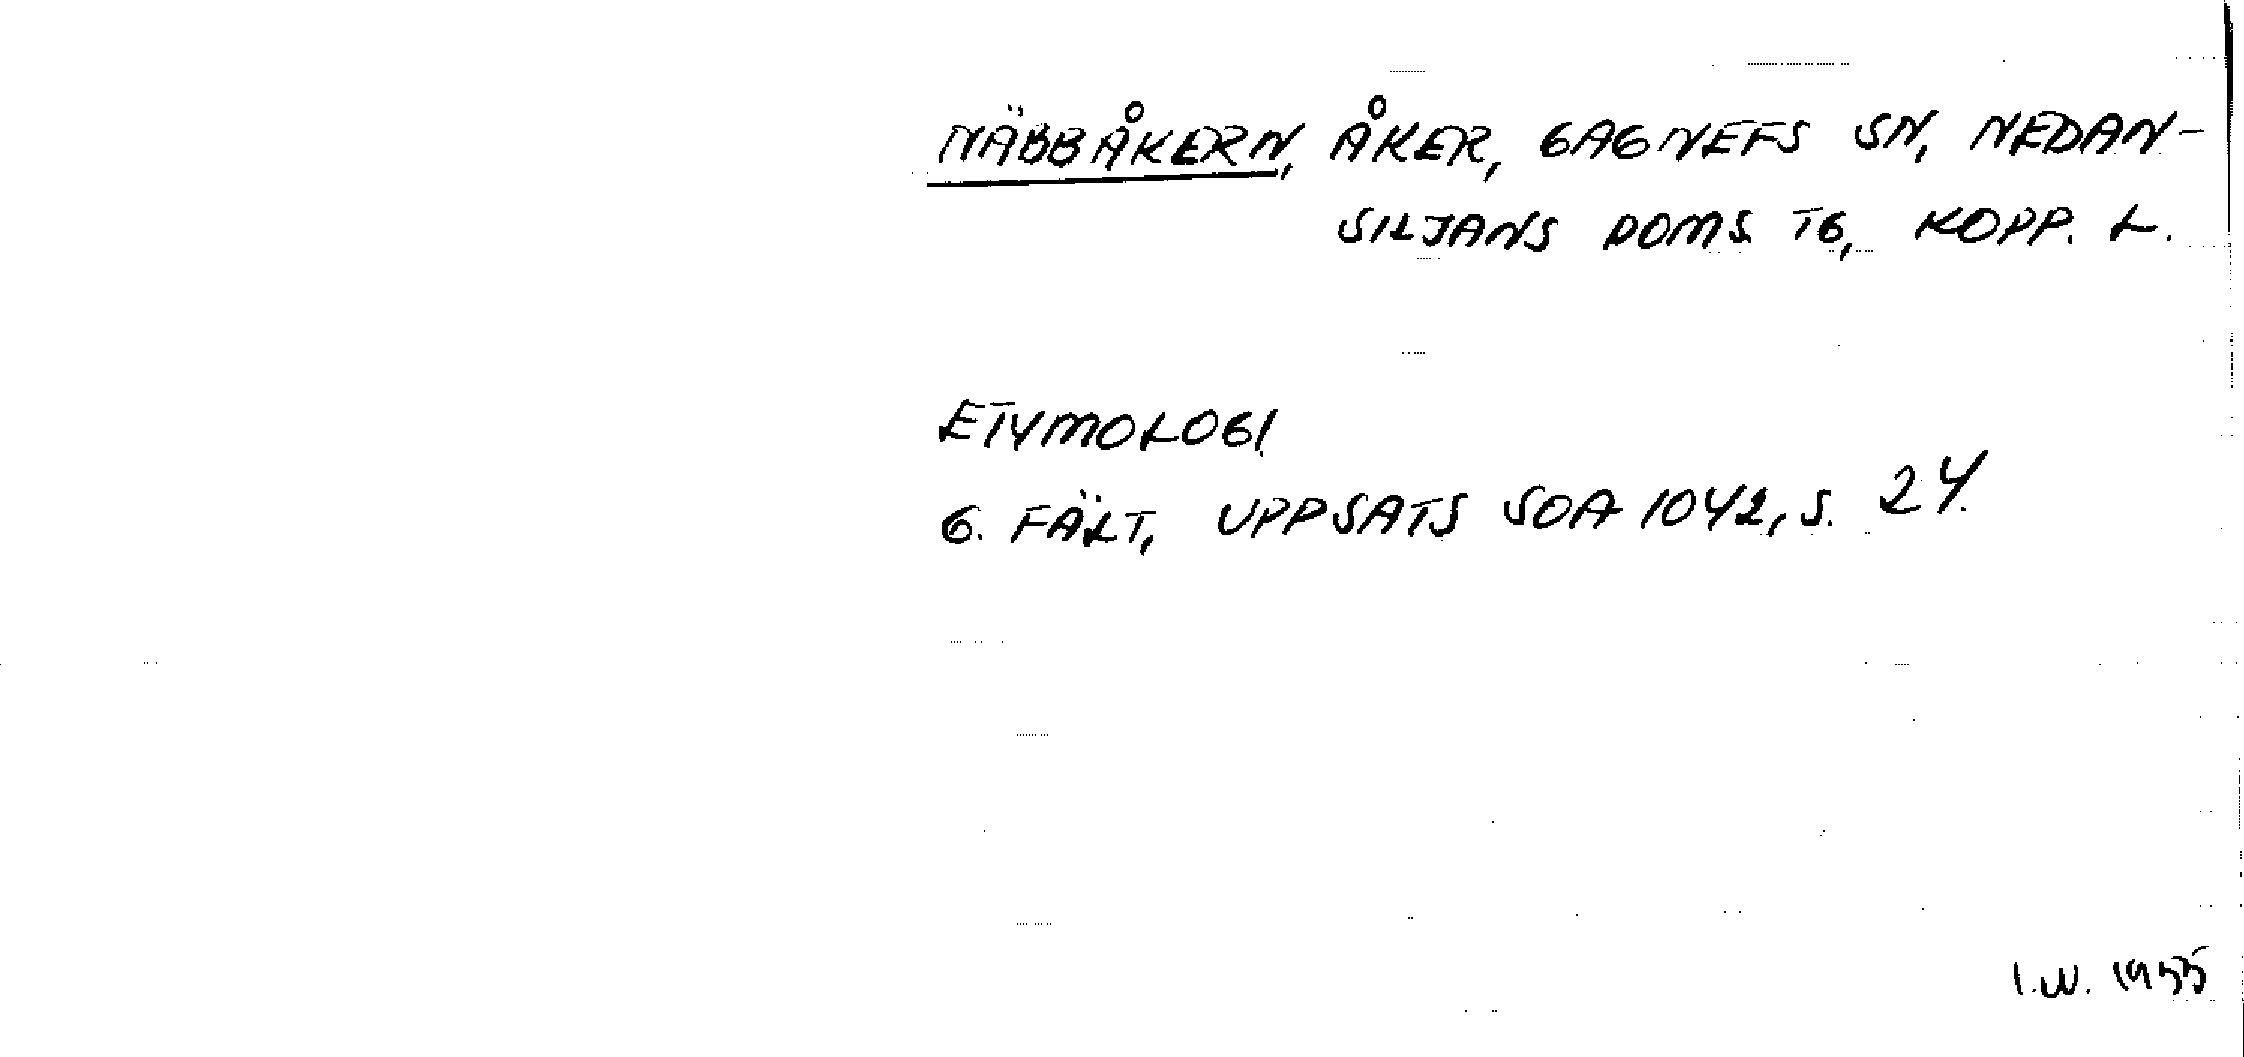 NÄBBÅKERN, ÅKER, GAGNEFS SN, NEDAN-
SILJANS DOMS. TG, KOPP. L.
ETYMOLOGI
G. FÄLT, UPPSATS SOA 1042, S. 24.
I.W. 1955